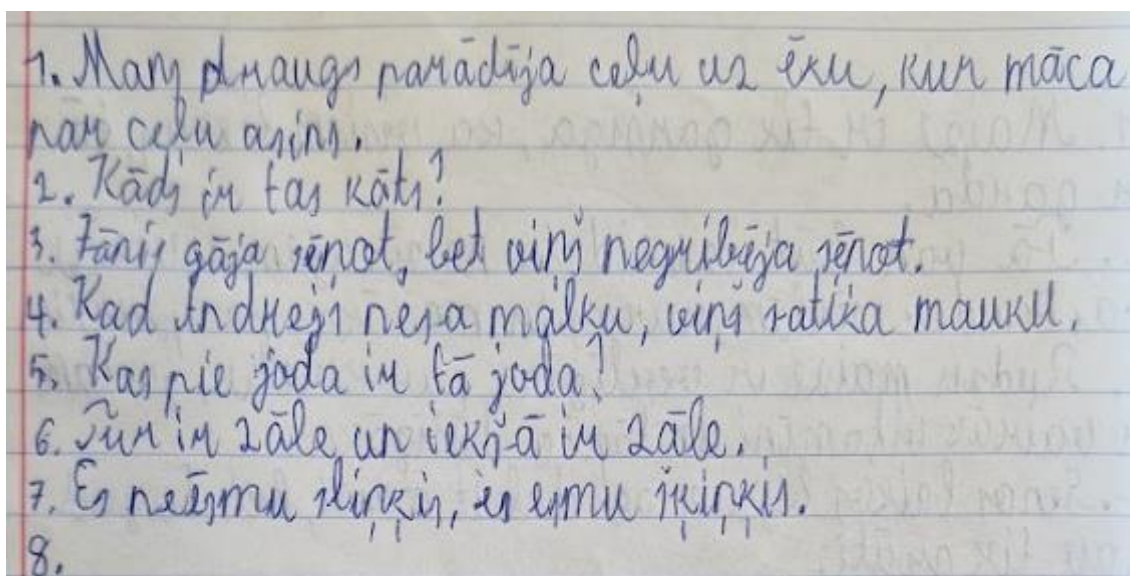 1. Mans draugs parādīja ceļu uz ēku, kur māca
par ceļu asins.
2. Kāds ir tas kāts?
3. Jānis gāja sēņot, bet viņš negribēja sēņot.
4. Kad Andrejs nesa malku, viņš satika mauku.
5. Kas pie joda ir tā joda?
6. Tur ir zāle un iekšā ir zāle.
7. Es neesmu sliņķis, es esmu šķiņķis.
8.